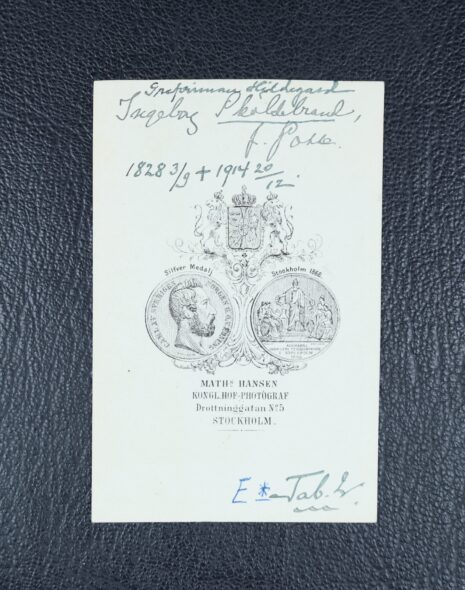 Grefvinnan Hildegard
Ingeborg Skjöldebrand,
f. Posse.
1828 3/9 + 1914 20/12.
Silfver Medalj
Stockholm 1866
MATHS HANSEN
KONGL. HOF-PHOTOGRAF
Drottninggatan No 5
STOCKHOLM.
E * Tab. 2.